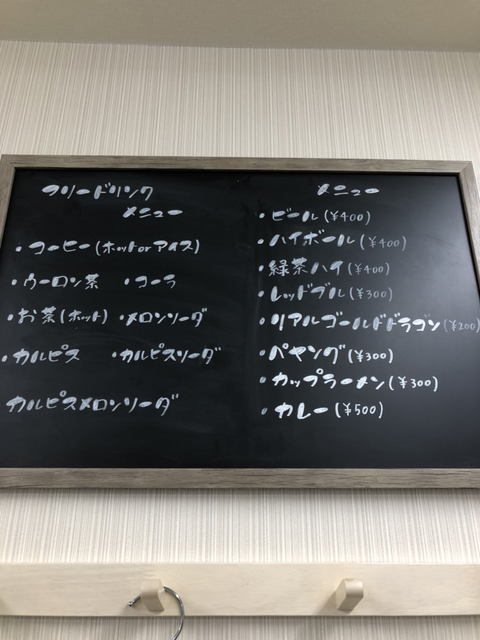 フリードリンク
メニュー
・コーヒー(ホットorアイス)
・ウーロン茶 ・コーラ
・お茶(ホット) ・メロンソーダ
・カルピス ・カルピスソーダ
カルピスメロンソーダ
メニュー
・ビール(¥400)
・ハイボール(¥400)
・緑茶ハイ(¥400)
・レッドブル(¥300)
・リアルゴールドドラゴン(¥200)
・ペヤング(¥300)
・カップラーメン(¥300)
・カレー(¥500)